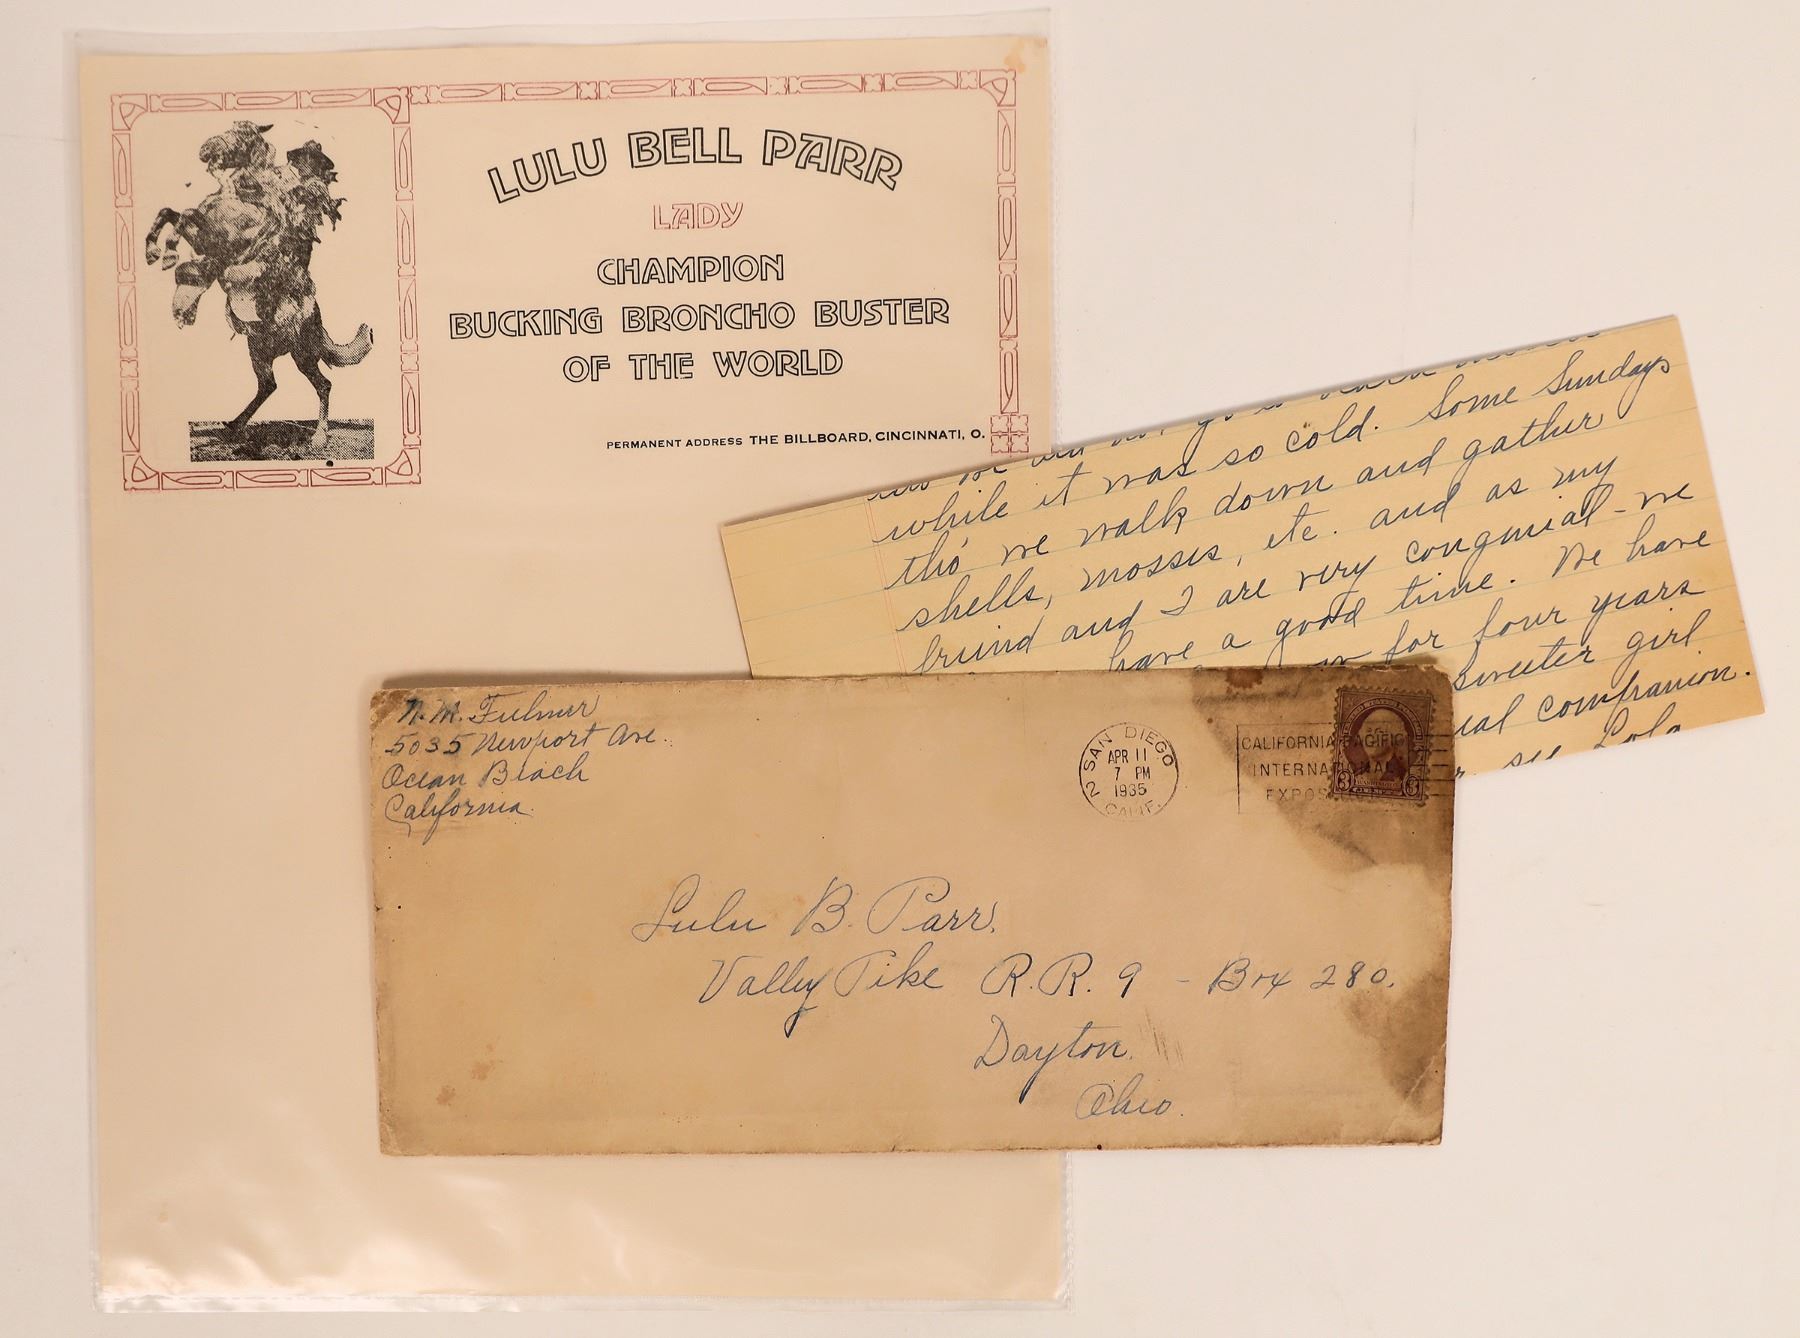 LULU BELL PARR
LADY
CHAMPION
BUCKING BRONCHO BUSTER
OF THE WORLD
PERMANENT ADDRESS THE BILLBOARD, CINCINNATI, O.
while it was so cold. Some Sundays
tho' we walk down and gather
shells, mosses, etc. and as my
friend and I are very congenial - we
have a good time. We have
for four years
sweeter girl
companion.
see Lola
N. M. Fulmer
5035 Newport Ave.
Ocean Beach
California.
SAN DIEGO
APR 11
7 PM
1935
2 CALIF.
CALIFORNIA PACIFIC
INTERNATIONAL
3 3
Lulu B. Parr.
Valley Pike R.R. 9 - Box 280.
Dayton.
Ohio.